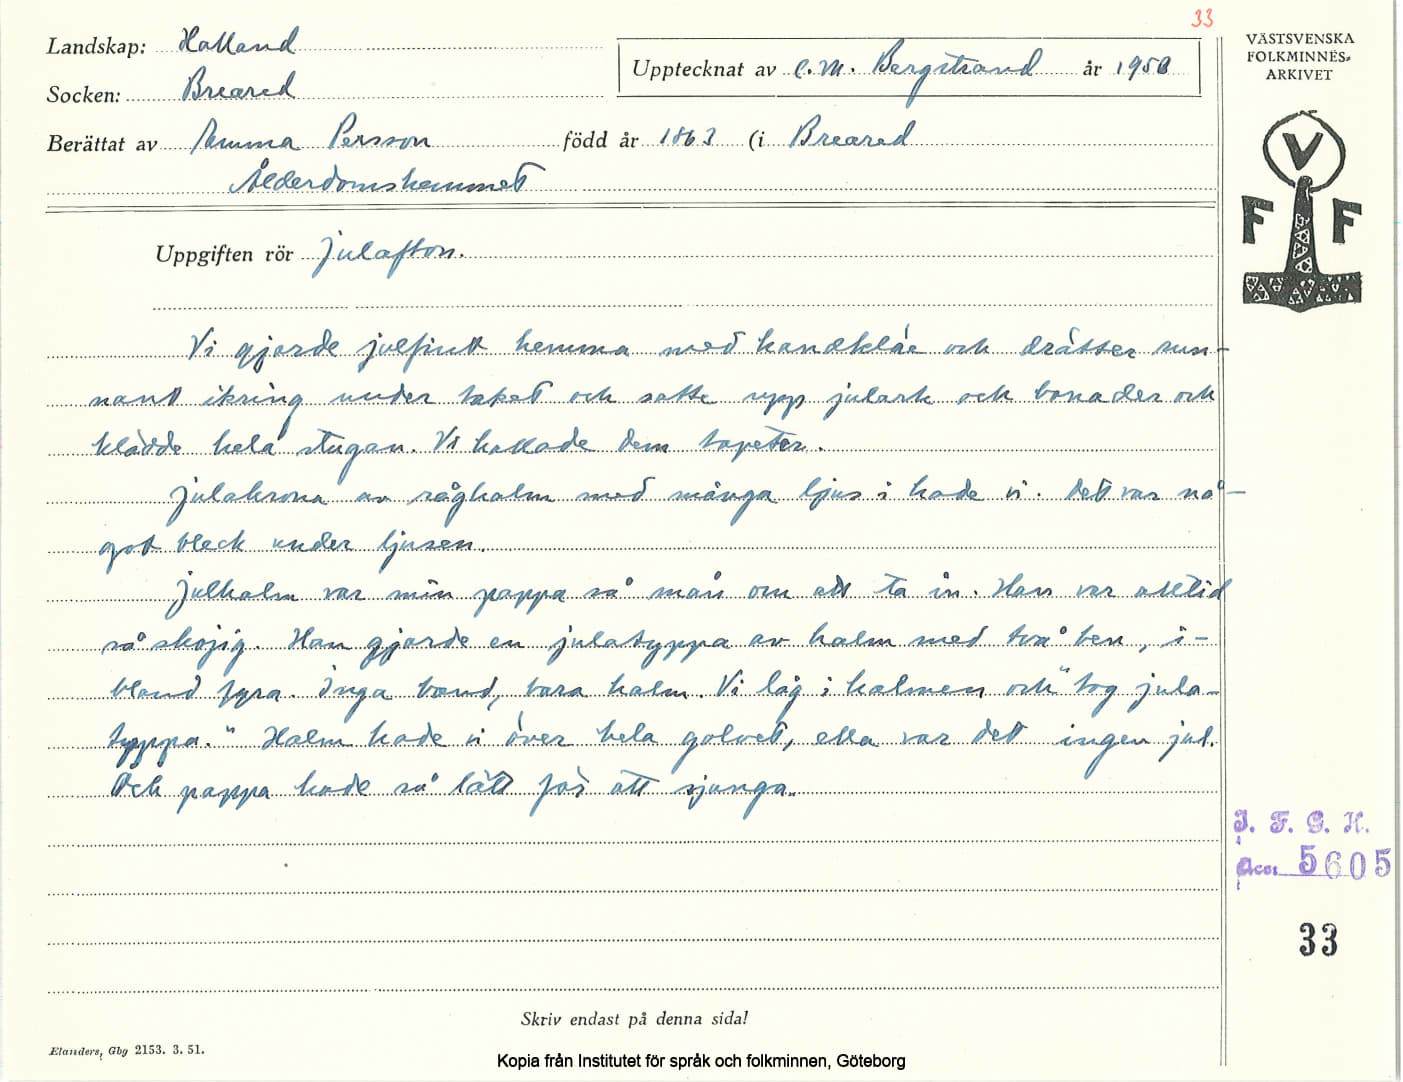 33
Landskap: Halland
Socken: Breared
Upptecknat av C. M. Bergstrand år 1950
Berättat av Emma Persson född år 1863 (i Breared
Ålderdomshemmet
VÄSTSVENSKA
FOLKMINNES-
ARKIVET
V
F F
Uppgiften rör Julafton.
Vi gjorde julfint hemma med handkläe och drätter run-
nant ikring under taket och satte upp julark och bonader och
klädde hela stugan. Vi kallade dem tapeter.
Julakrona av råghalm med många ljus i hade vi. Det var nå-
got bleck under ljusen.
Julhalm var min pappa så mån om att ta in. Han var alltid
så skojig. Han gjorde en julatyppa av halm med två ben, i-
bland fyra. Inga band, bara halm. Vi låg i halmen och "tog jula-
typpa." Halm hade vi över hela golvet, ella var det ingen jul.
Och pappa hade så lätt för att sjunga.
I. F. G. H.
Acc. 5605
33
Skriv endast på denna sida!
Elanders, Gbg 2153. 3. 51.
Kopia från Institutet för språk och folkminnen, Göteborg